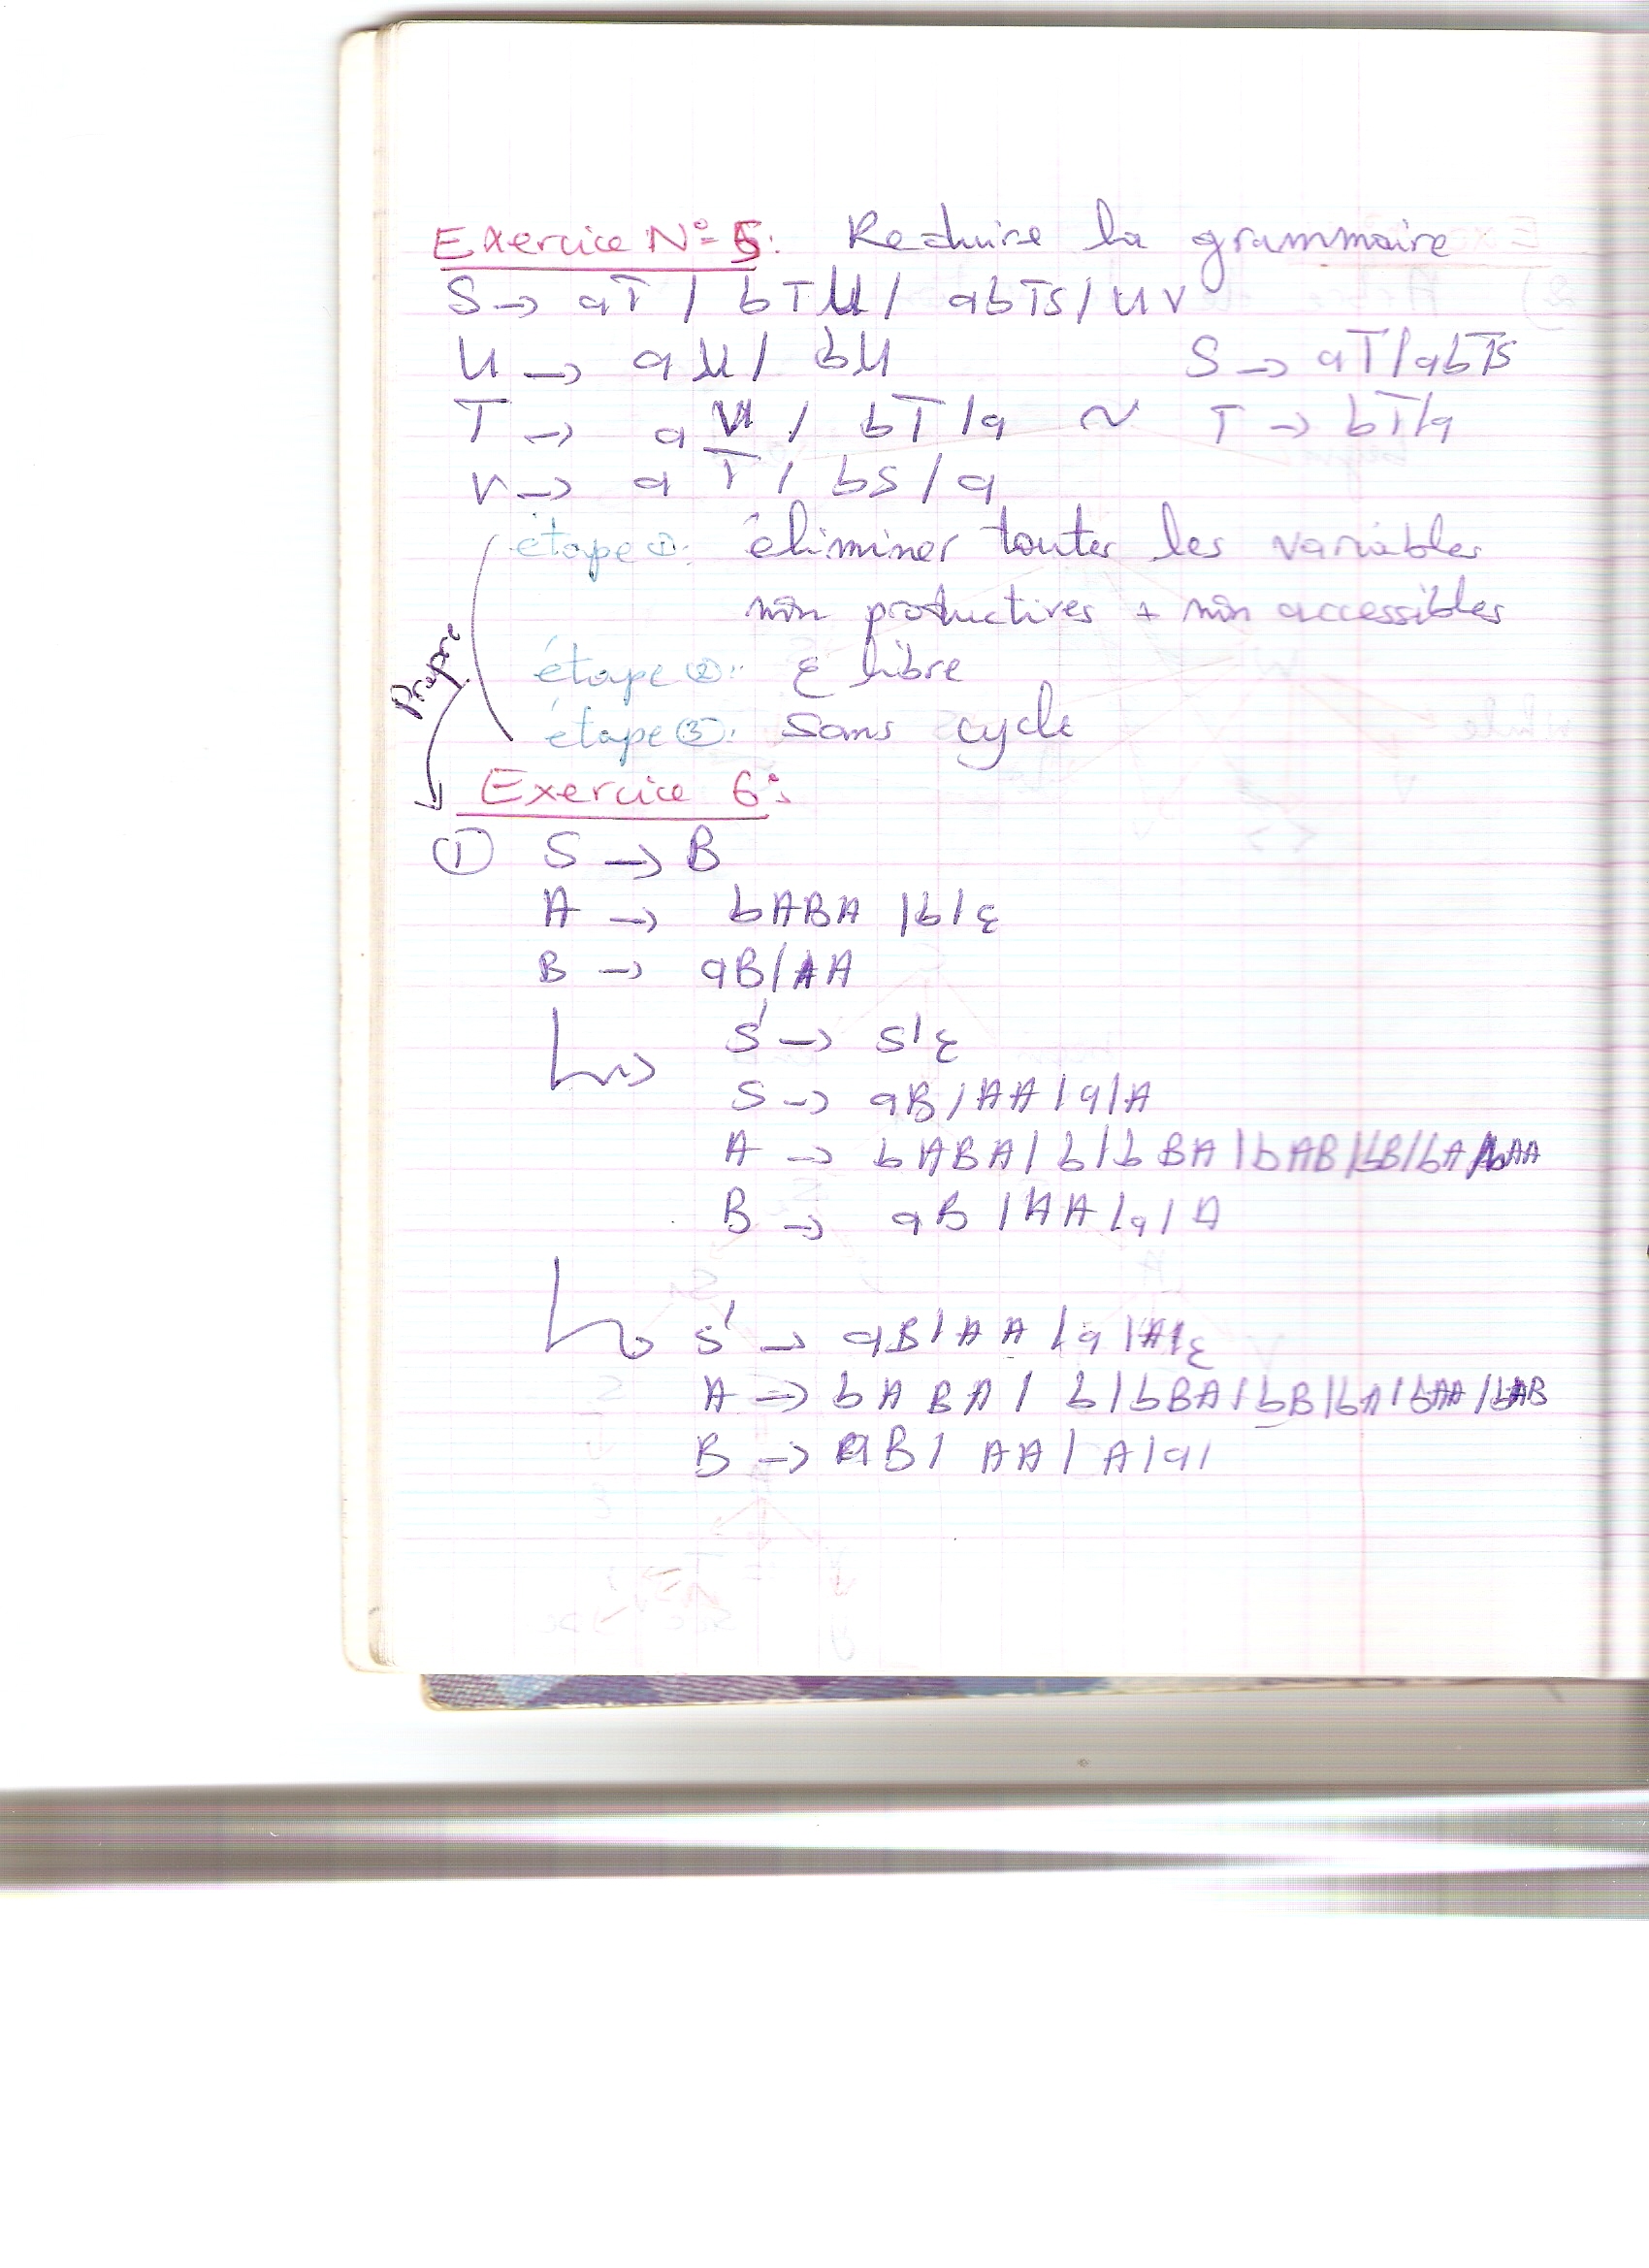 Exercice N°= 5: Reduire la grammaire
S → aT / bTU / abTS / UV
U → aU / bU S → aT/abTS
T → aU / bT /a ~ T → bT/a
V → aT / bS / a
étape ①: éliminer toutes les variables
non productives + non accessibles
étape ②: ε libre
étape ③: Sans cycle
Propre
Exercice 6:
① S → B
A → bABA |b|ε
B → aB/AA
S' → S|ε
S → aB/AA|a|A
A → bABA|b|bBA|bAB|bB|bA|bAA
B → aB|AA|a|A
S' → aB|AA|a|A|ε
A → bABA|b|bBA|bB|bA|bAA|bAB
B → aB|AA|A|a|